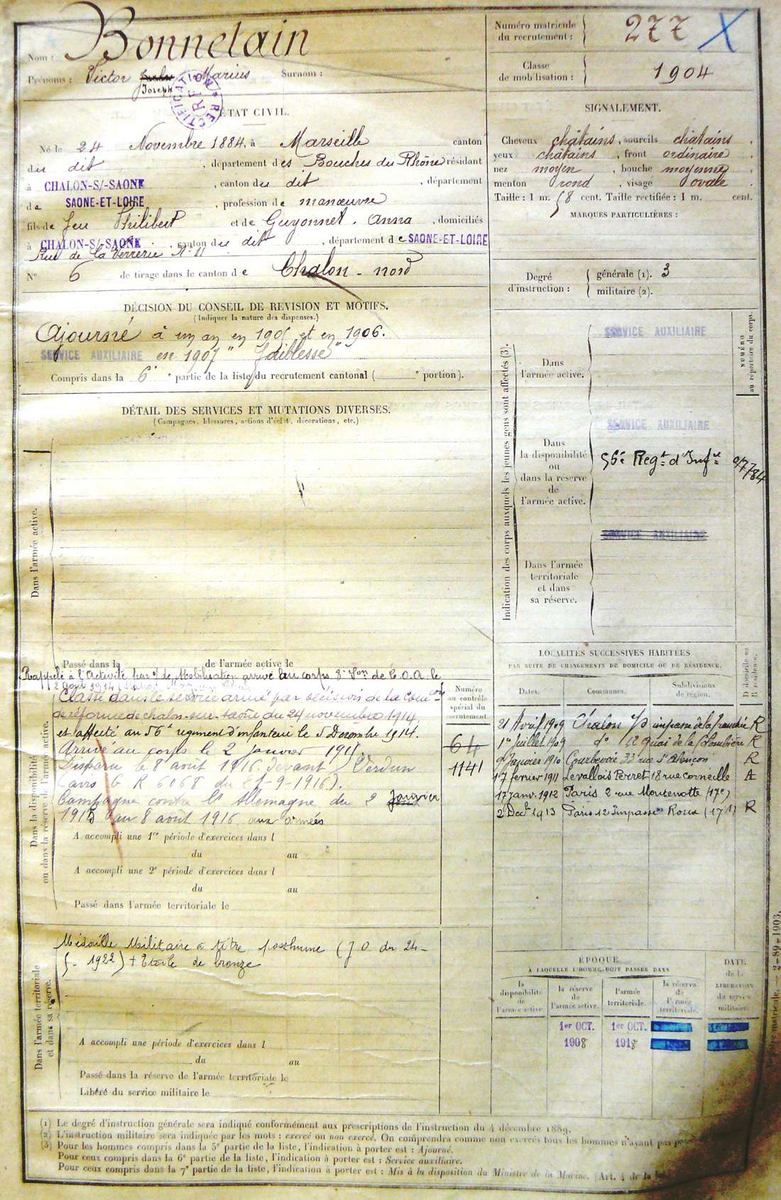 Nom : Bonnetain
Prénoms : Victor Joseph Marius Surnom :
Numéro matricule du recrutement : 277 X
Classe de mobilisation : 1904
ÉTAT CIVIL.
Né le 24 Novembre 1884, à Marseille canton
du dit, département des Bouches du Rhône résidant
à CHALON-S/-SAONE, canton du dit, département
de SAONE-ET-LOIRE, profession de manœuvre
fils de feu Philibert et de Guyonnet Anna, domiciliés
à CHALON-S/-SAONE, canton du dit, département de SAONE-ET-LOIRE
Rue de la Verrerie N° 11
N° 6 de tirage dans le canton de Chalon-nord
SIGNALEMENT.
Cheveux châtains, sourcils châtains,
yeux châtains, front ordinaire
nez moyen, bouche moyenne
menton rond, visage ovale
Taille : 1 m. 58 cent. Taille rectifiée : 1 m. cent.
MARQUES PARTICULIÈRES :
Degré d'instruction : générale (1). 3
militaire (2).
DÉCISION DU CONSEIL DE REVISION ET MOTIFS.
(Indiquer la nature des dispenses.)
Ajourné à un an en 1905 et en 1906.
SERVICE AUXILIAIRE en 1907 "faiblesse"
Compris dans la 6e partie de la liste du recrutement cantonal ( e portion).
DÉTAIL DES SERVICES ET MUTATIONS DIVERSES.
(Campagnes, blessures, actions d'éclat, décorations, etc.)
Dans l'armée active.
Passé dans la de l'armée active le
Rappelé à l'Activité
Classé dans le service armé par décision de la Comon
de réforme de chalon sur saône du 24 novembre 1914
et affecté au 56e régiment d'infanterie le 5 Décembre 1914.
Arrivé au corps le 2 janvier 1915.
Disparu le 8 août 1916 devant Verdun
(avis
Campagne contre l'Allemagne du 2 Janvier
1915 au 8 août 1916 aux armées
Dans la disponibilité
ou dans la réserve de l'armée active.
A accompli une 1re période d'exercices dans l
du au
A accompli une 2e période d'exercices dans l
du au
Passé dans l'armée territoriale le
Numéro au contrôle spécial du recrutement.
64
1141
Médaille Militaire à titre posthume (J.O. du 24-
5-1922) + Etoile de bronze
Dans l'armée territoriale
et dans sa réserve.
A accompli une période d'exercices dans l
du au
Passé dans la réserve de l'armée territoriale le
Libéré du service militaire le
Indication des corps auxquels les jeunes gens sont affectés (3).
NUMÉRO au répertoire du corps.
SERVICE AUXILIAIRE
Dans l'armée active.
SERVICE AUXILIAIRE
Dans la disponibilité ou dans la réserve de l'armée active.
56e Regt d'Infie
SERVICE AUXILIAIRE
Dans l'armée territoriale et dans sa réserve.
LOCALITÉS SUCCESSIVES HABITÉES
PAR SUITE DE CHANGEMENTS DE DOMICILE OU DE RÉSIDENCE.
Dates. Communes. Subdivisions de région. D. domicile ou R. résidence.
21 Avril 1909 Chalon s/s impasse de la R
1er Juillet 1909 do 12 quai de la R
9 Janvier 1910 Courbevoie 33 rue R
17 fevrier 1911 Levallois Perret 18 rue Corneille
17 janv. 1912 Paris 2 rue Montenotte (17e)
2 Dece 1913 Paris 12 Impasse Roux (17e) R
ÉPOQUE
À LAQUELLE L'HOMME DOIT PASSER DANS
DATE de la LIBÉRATION du service militaire.
la disponibilité de l'armée active
la réserve de l'armée active.
l'armée territoriale.
la réserve de l'armée territoriale.
1er OCT. 1908
1er OCT. 1918
(1) Le degré d'instruction générale sera indiqué conformément aux prescriptions de l'instruction du 4 décembre 1889.
(2) L'instruction militaire sera indiquée par les mots : exercé ou non exercé. On comprendra comme non exercés tous les hommes n'ayant pas
(3) Pour les hommes compris dans la 5e partie de la liste, l'indication à porter est : Ajourné.
Pour ceux compris dans la 6e partie de la liste, l'indication à porter est : Service auxiliaire.
Pour ceux compris dans la 7e partie de la liste, l'indication à porter est : Mis à la disposition du Ministre de la Marine. (Art. 4 de la